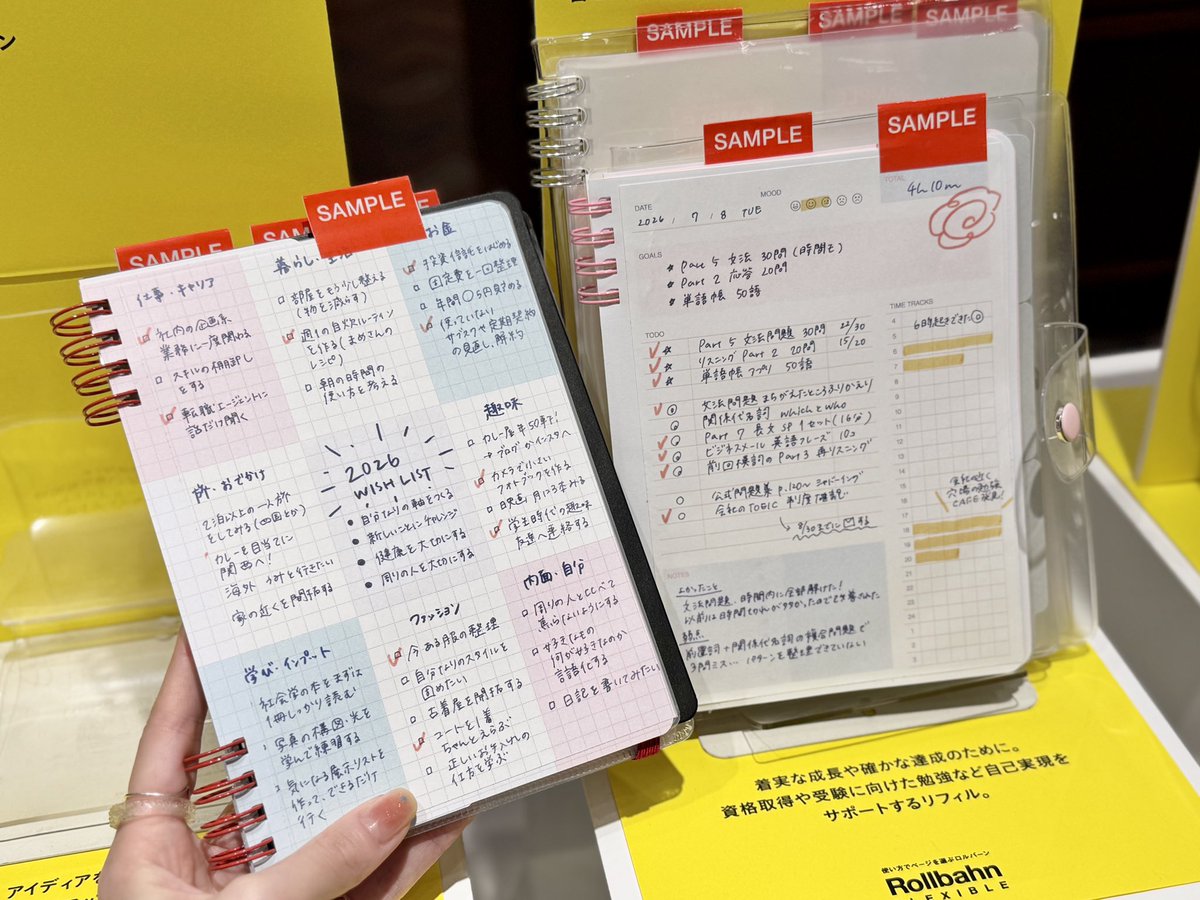 ン
SAMPLE
SAMPLE
SAMPLE
SAMPLE
SAMPLE
SAMPLE
SAMPLE
SAMPLE
仕事・キャリア
社内の企画系
業務に一度関わる
スキルの棚卸し
をする
転職エージェントに
話だけ聞く
暮らし・
部屋をもう少し整える
(物を減らす)
週1の自炊ルーティン
を作る(まめさんの
レシピ)
朝の時間の
使い方を考える
お金
投資信託をはじめる
固定費を一回整理
年間〇万円貯める
使っていない
サブスクや定期契約
の見直し、解約
旅・おでかけ
2泊以上の一人旅
をしてみる(四国とか)
カレーを目当てに
関西へ!
海外 と行きたい
家の近くを開拓する
2026
WISH LIST
自分なりの軸をつくる
新しいことにチャレンジ
健康を大切にする
周りの人を大切にする
趣味
カレー屋年50軒!
→ブログかインスタへ
カメラで小さい
フォトブックを作る
映画、月に3本みる
学生時代の趣味
友達へ連絡する
学び・インプット
社会学の本をまずは
1冊しっかり読む
写真の構図・光を
学んで練習する
気になる展示リストを
作って、できるだけ
行く
ファッション
今ある服の整理
自分なりのスタイルを
固めたい
古着屋を開拓する
コートを1着
ちゃんとえらぶ
正しいお手入れの
仕方を学ぶ
内面・自分
周りの人とくらべて
焦らないようにする
好きなもの
何が好きなのか
言語化する
日記を書いてみたい
DATE
2026 / 7 / 8 TUE
MOOD
TOTAL
4h 10m
GOALS
Part 5 文法 30問 (時間も)
Part 2 応答 20問
単語帳 50語
TODO
Part 5 文法問題 30問 22/30
リスニング Part 2 20問 15/20
単語帳アプリ 50語
文法問題 まちがえたところふりかえり
関係代名詞 whichとwho
Part 7 長文 SP 1セット(16分)
ビジネスメール 英語フレーズ 10コ
前回模試の Part 3 再リスニング
公式問題集 p.120〜 シャドーイング
会社のTOEIC 制度確認
8/30までに する
TIME TRACKS
4
6時起きできた
5
6
7
8
9
10
11
12
13
14
15
16
17
18
19
20
21
22
23
24
1
2
3
会社の近く
穴場の勉強
CAFE発見!
NOTES
よかったこと
文法問題、時間内に全部解けた!
以前は時間切れが多かったのでだいぶ
弱点
前置詞+関係代名詞の複合問題で
3問ミス… パターンを整理できていない
着実な成長や確かな達成のために。
資格取得や受験に向けた勉強など自己実現を
サポートするリフィル。
使い方でページを選ぶロルバーン
Rollbahn
FLEXIBLE
アイディアを